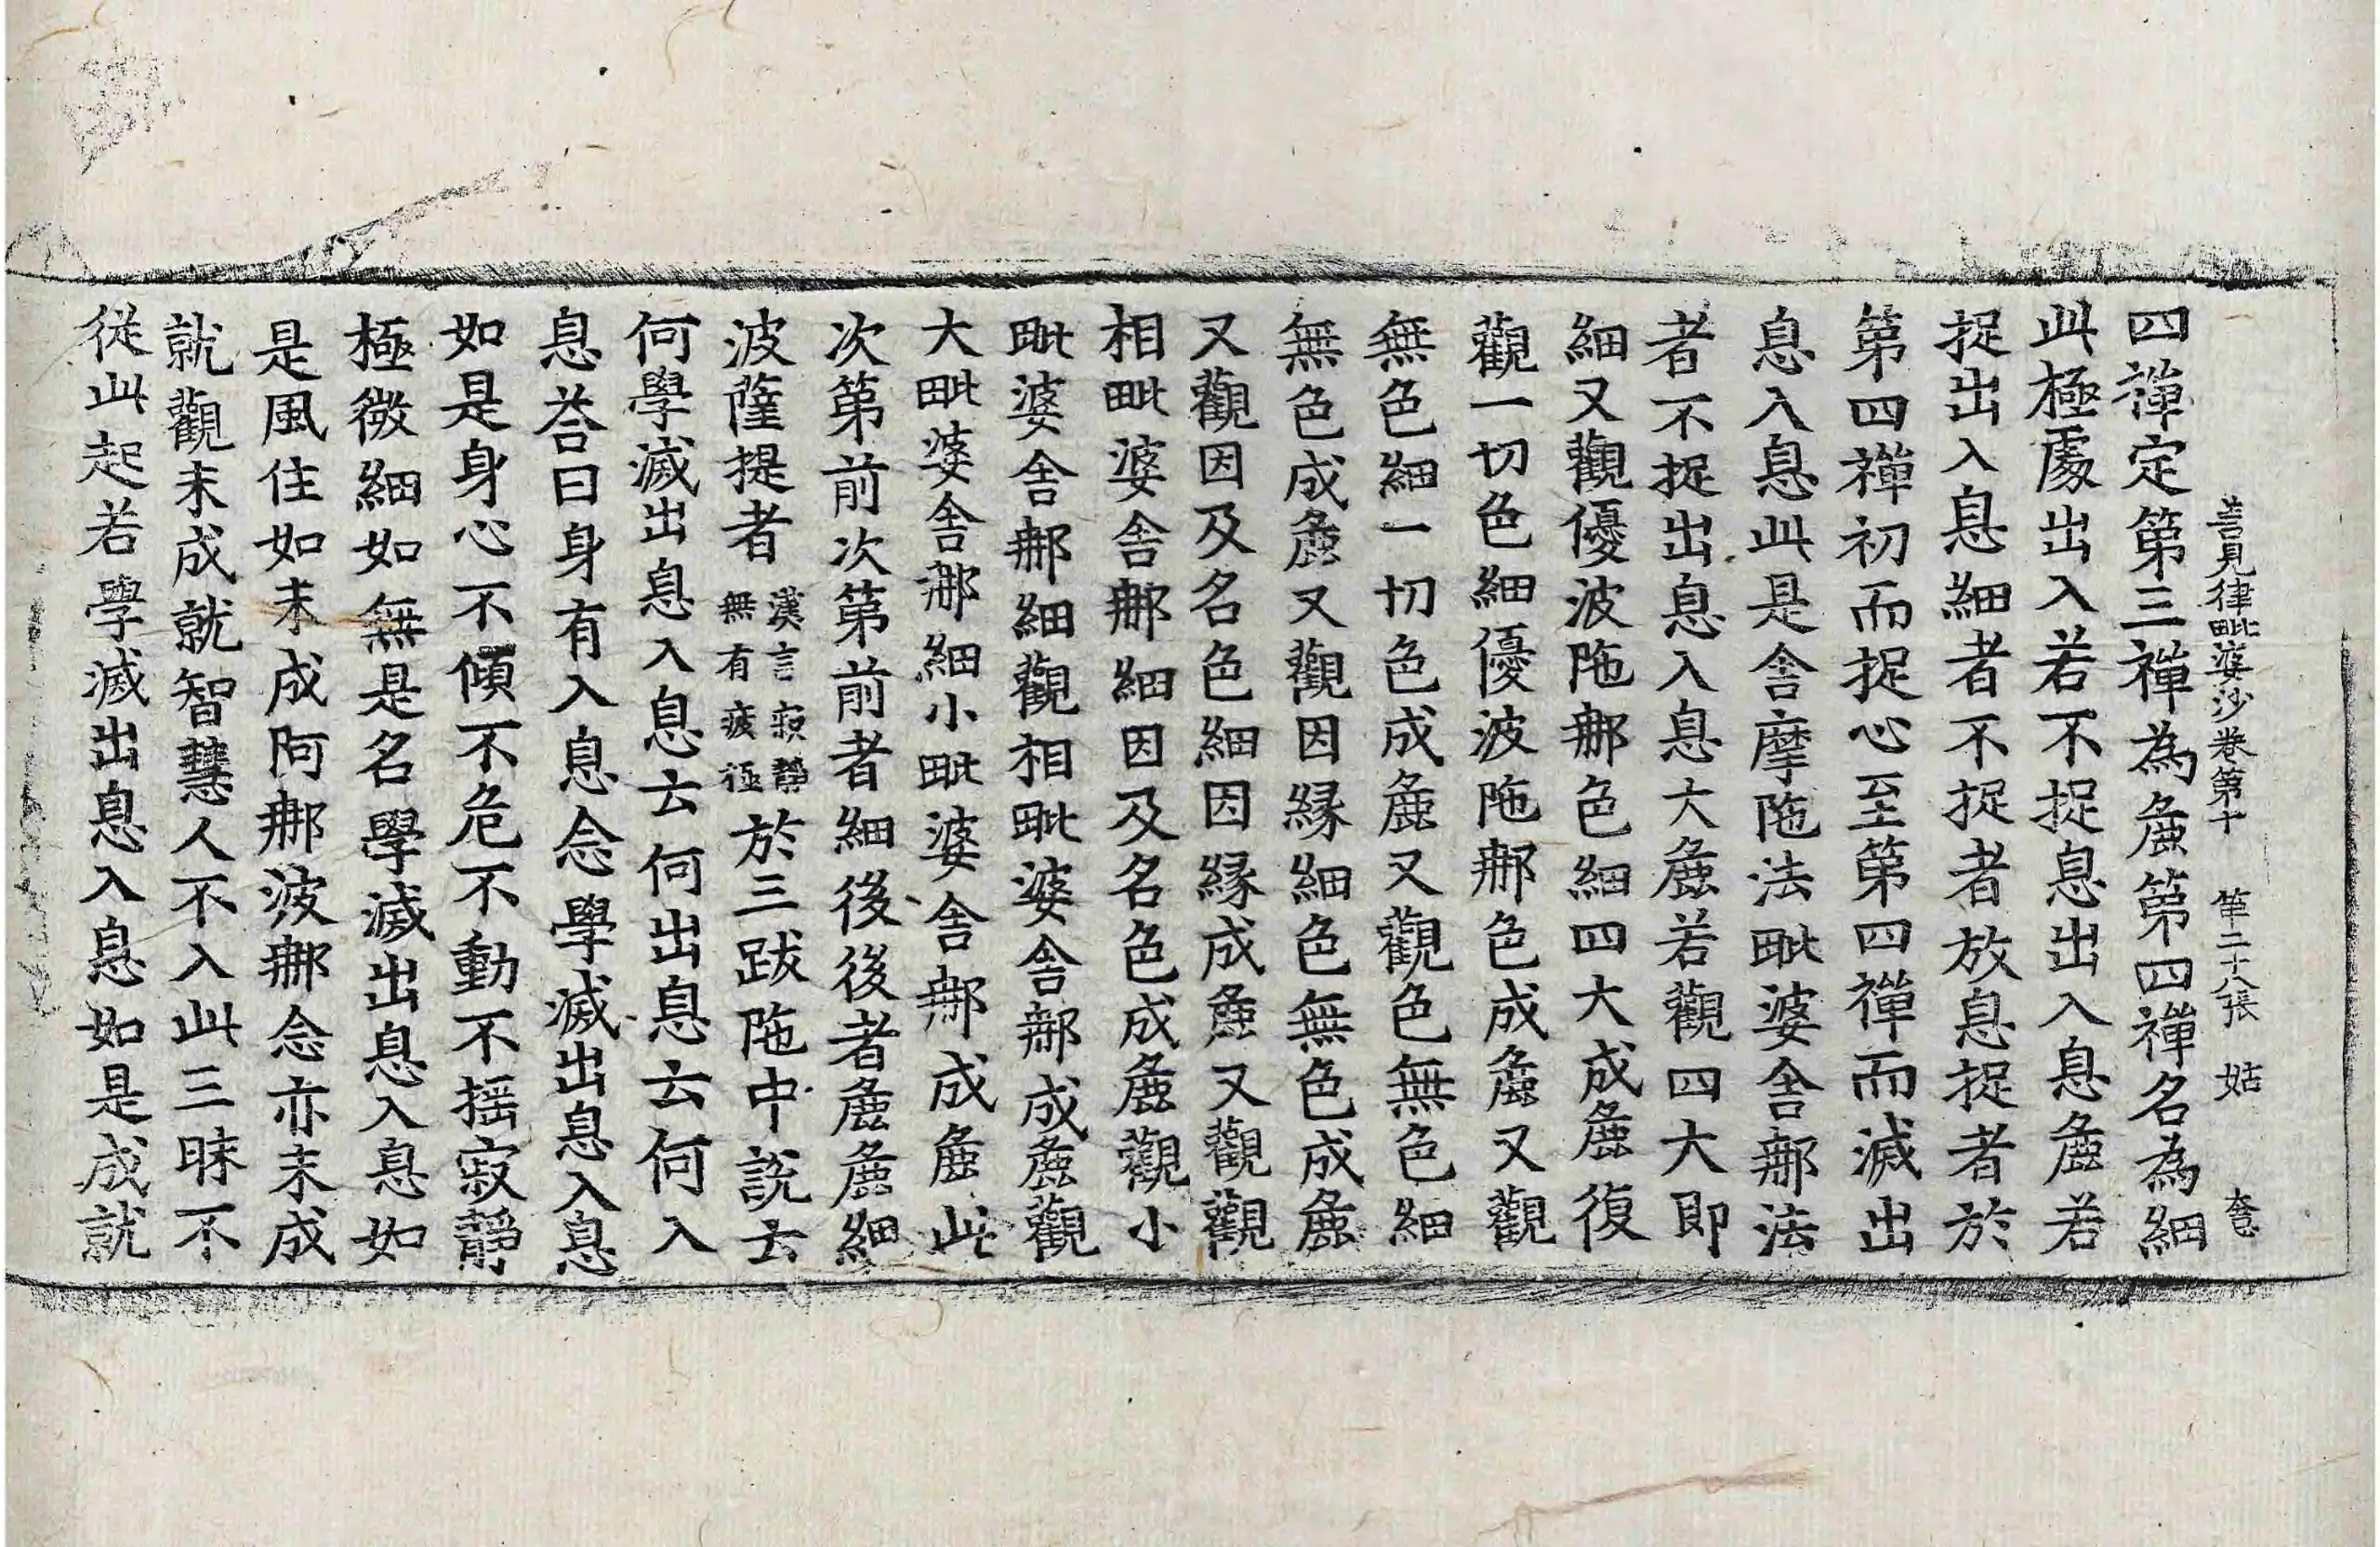 善見律毗婆沙卷第十　第二十八張　姑　大忠
四禪定第三禪為麁第四禪名為細
此極處出入若不捉息出入息麁若
捉出入息細者不捉者放息捉者於
第四禪初而捉心至第四禪而滅出
息入息此是舎摩陁法毗婆舎那法
者不捉出息入息大麁若觀四大即
細又觀優波陁那色細四大成麁復
觀一切色細優波陁那色成麁又觀
無色細一切色成麁又觀色無色細
無色成麁又觀因縁細色無色成麁
又觀因及名色細因縁成麁又觀觀
相毗婆舎那細因及名色成麁觀小
毗婆舎那細觀相毗婆舎那成麁觀
大毗婆舎那細小毗婆舎那成麁此
次第前次第前者細後後者麁麁細
波薩提者漢言寂靜無有疲極於三跋陁中說去
何學滅出息入息去何出息云何入
息荅曰身有入息念學滅出息入息
如是身心不傾不危不動不揺寂靜
極微細如無是名學滅出息入息如
是風住如未成阿那波那念亦未成
就觀未成就智慧人不入此三昧不
從此起若學滅出息入息如是成就